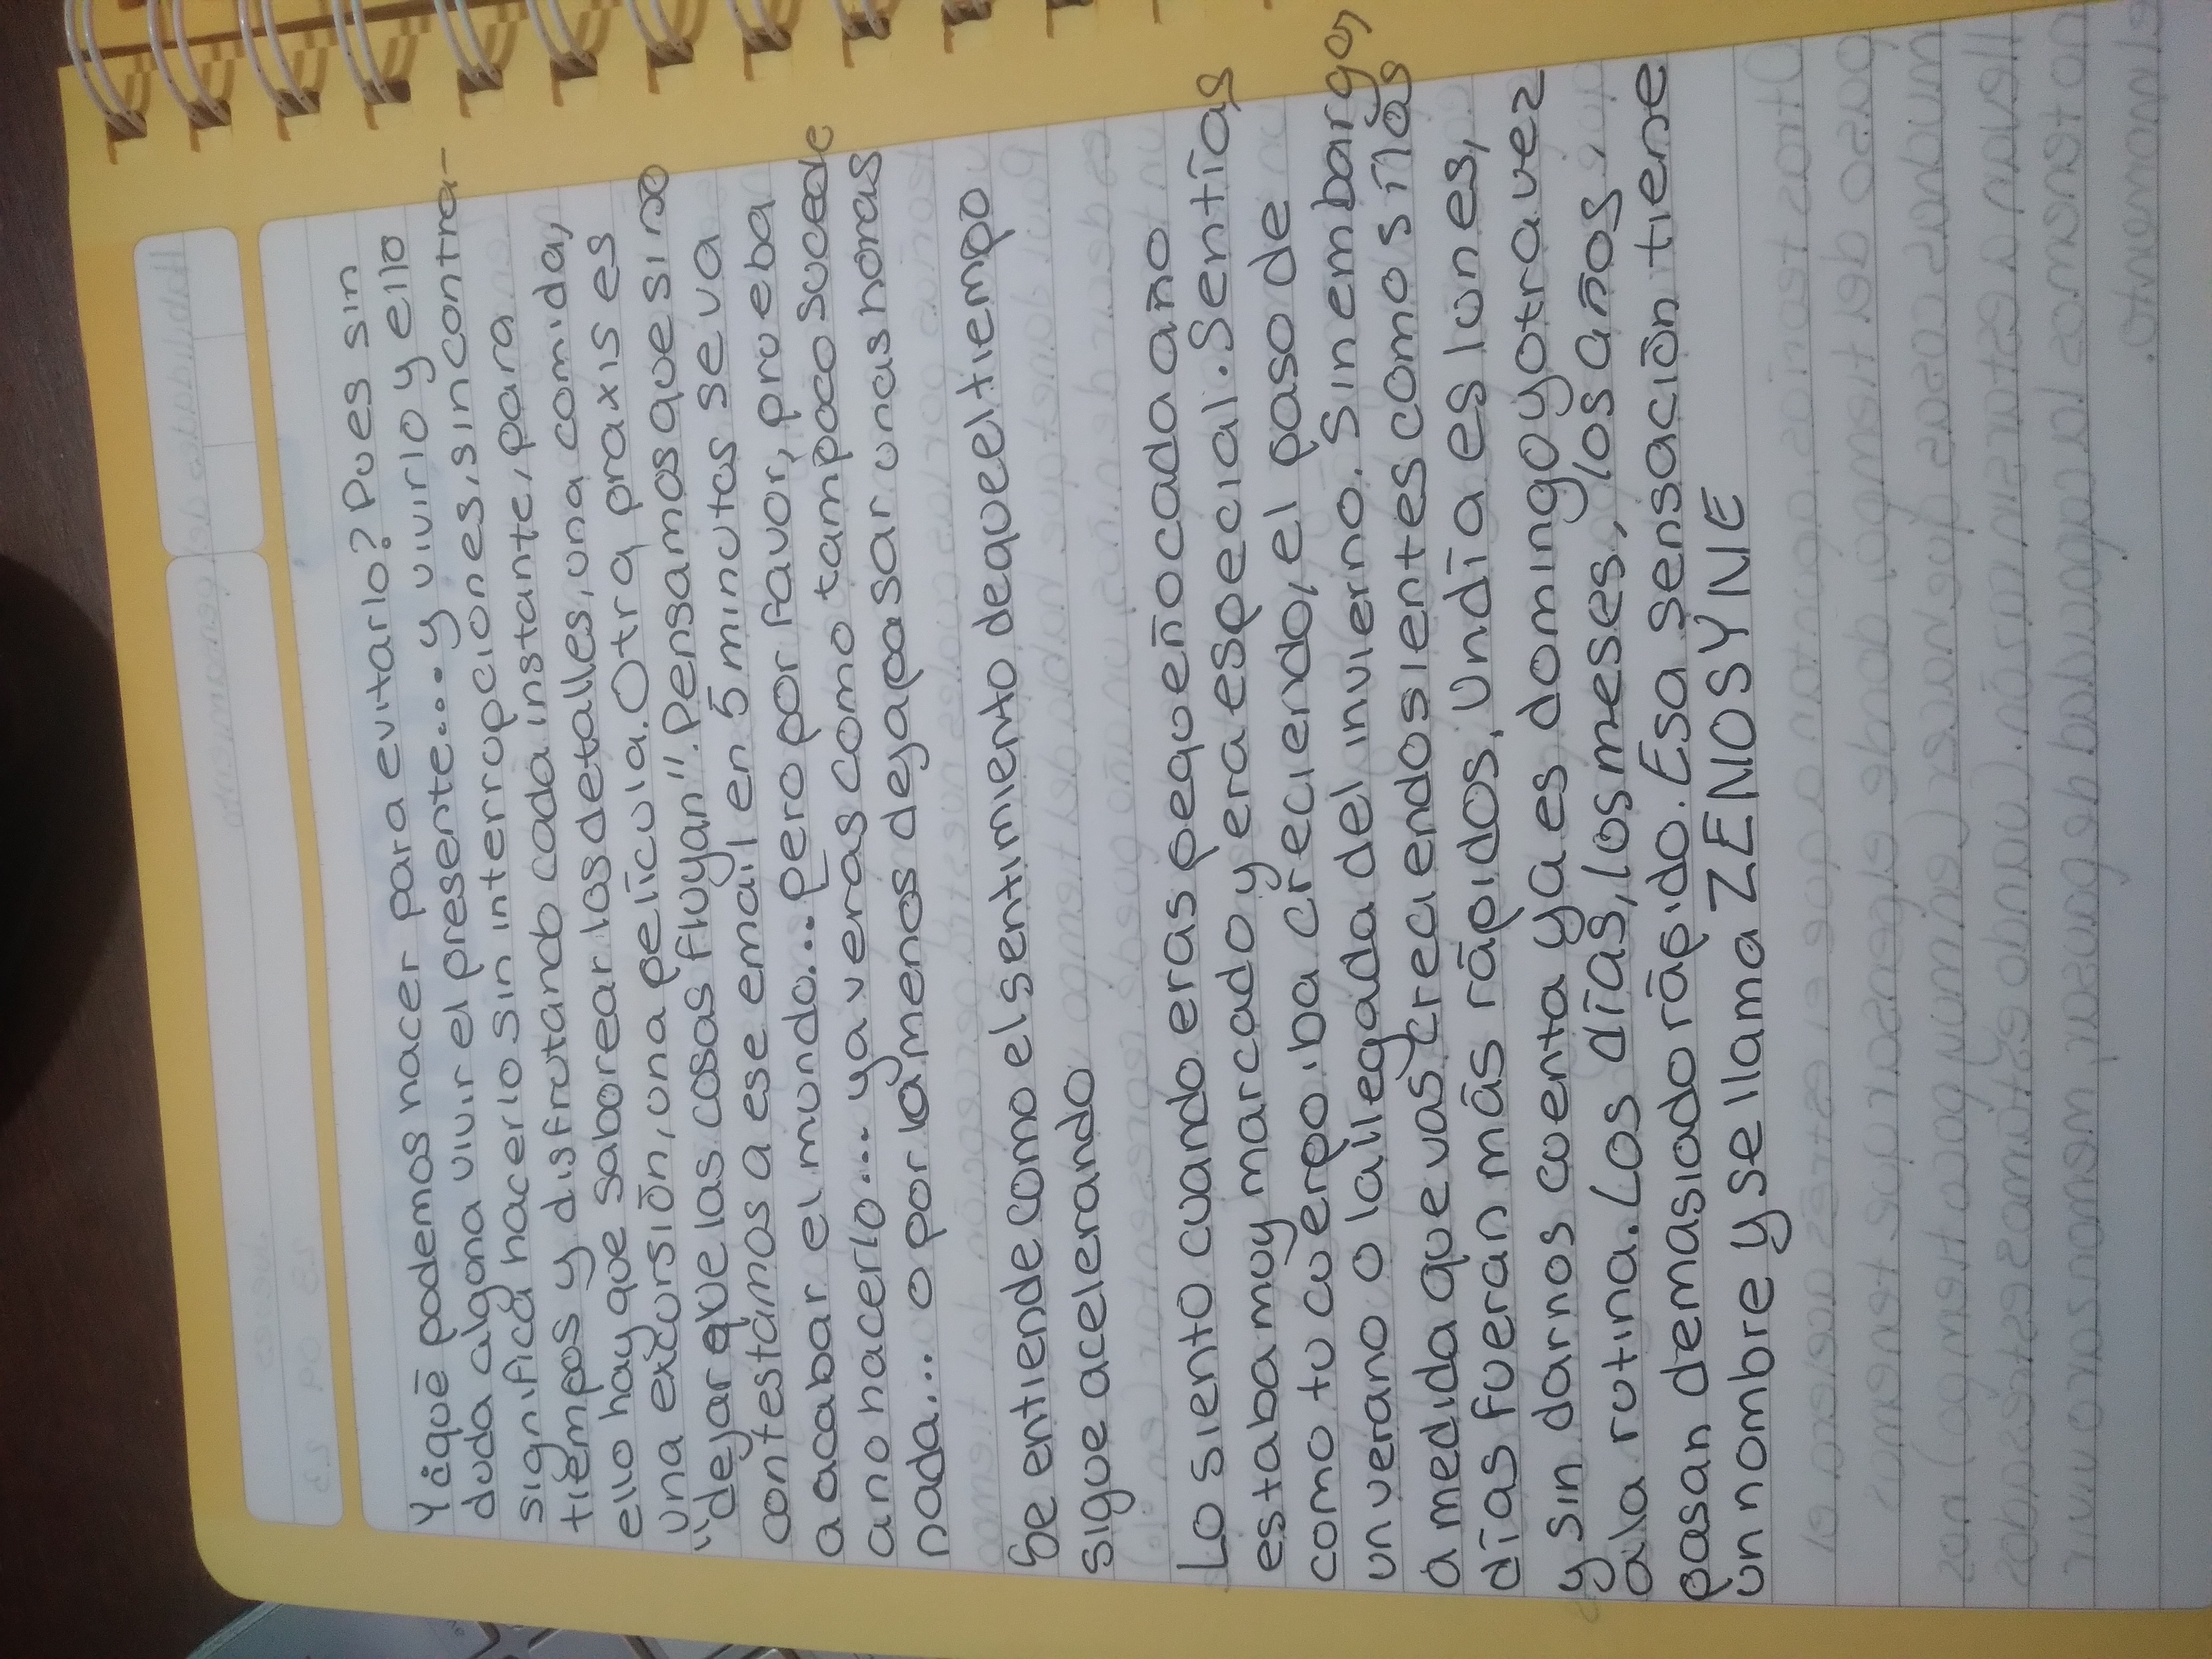 Y ¿qué podemos hacer para evitarlo? Pues sin
duda alguna vivir el presente.... y vivirlo y ello
significa hacerlo sin interrupciones, sin contra-
tiempos y disfrutando cada instante, para
ello hay que saborear los detalles, una comida,
una excursión, una película. Otra praxis es
"dejar que las cosas fluyan". Pensamos que si no
contestamos a ese email en 5 minutos se va
a acabar el mundo... pero por favor, prueba
a no hacerlo.... ya verás como tampoco sucede
nada... o por lo menos deja pasar unas horas
Se entiende como el sentimiento de que el tiempo
sigue acelerando
Lo siento cuando eras pequeño cada año
estaba muy marcado y era especial. Sentías
como tu cuerpo iba creciendo, el paso de
un verano o la llegada del invierno. Sin embargo,
a medida que vas creciendo sientes como si los
días fueran más rápidos, un día es lunes,
y sin darnos cuenta ya es domingo y otra vez
a la rutina. Los días, los meses, los años.
pasan demasiado rápido. Esa sensación tiene
un nombre y se llama ZENOSYNE